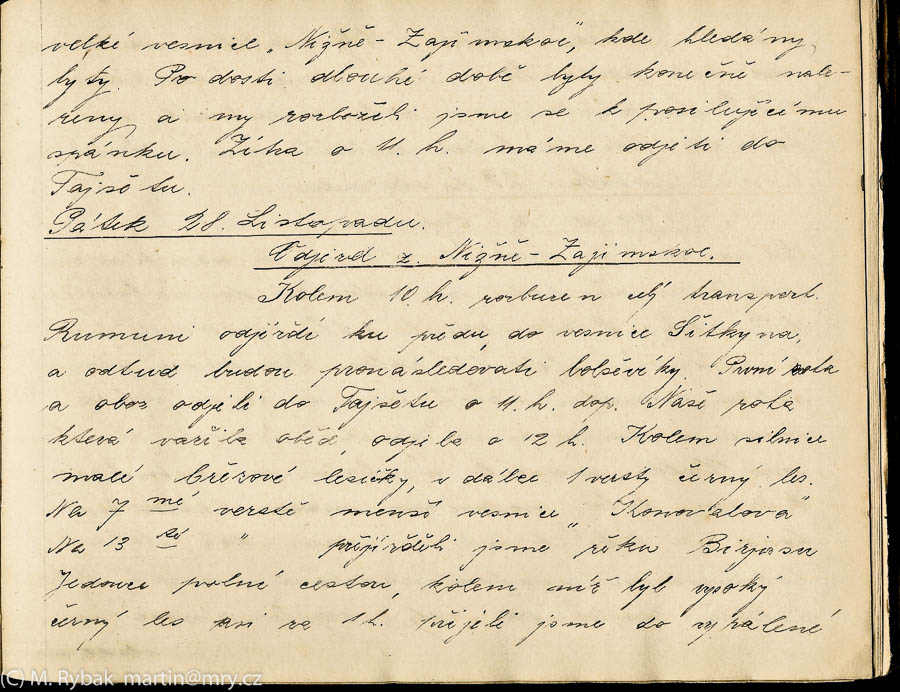 velké vesnice „Nižně-Zajimskoe", kde hledány
byty. Po dosti dlouhé době byty konečně nale-
zeny a my rozložili jsme se k posilujícímu
spánku. Zítra o 11. h. máme odjeti do
Tajšetu.
Pátek 28. Listopadu.
Odjezd z. Nižně-Zajimskoe.
Kolem 10. h. rozbuzen celý transport.
Rumuni odjíždí ku předu, do vesnice Šitkyna,
a odtud budou pronásledovati bolševíky. První rota
a oboz odjeli do Tajšetu o 11. h. dop. Naše rota
která vařila oběd, odjela o 12 h. Kolem silnice
malé březové lesíčky, v dálce 1 versty černý les.
Na 7 mé verstě menší vesnice „Konovalova"
Na 13 té " přijížděli jsme řeku Birjusu
Jedouce polní cestou, kolem níž byl vysoký
černý les asi za 1 h. přijeli jsme do vypálené
(C) M. Rybak martin@mry.cz